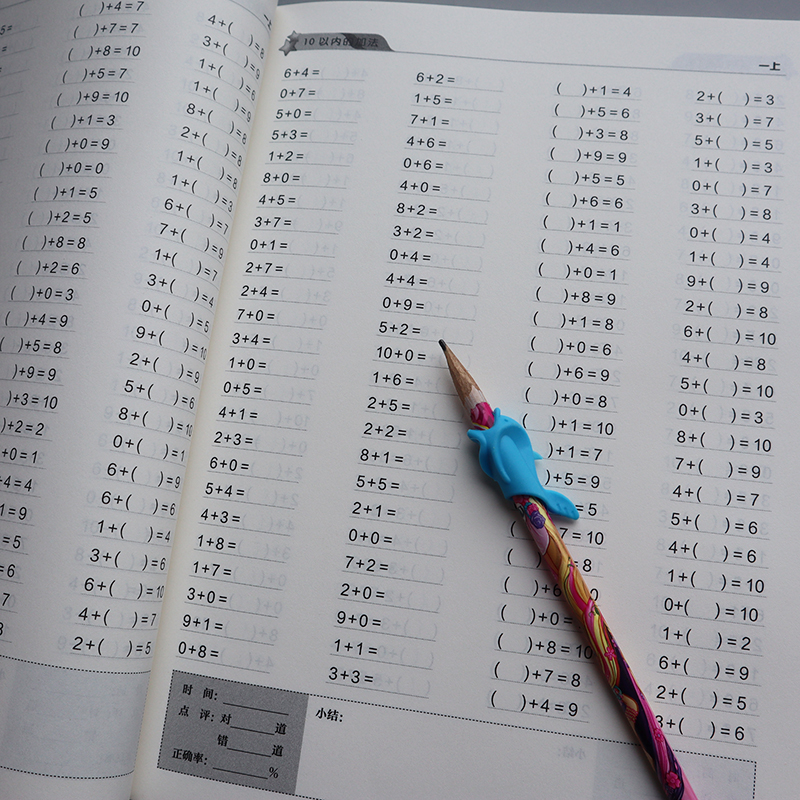 ( )+4=7
( )+7=7
( )+8=10
( )+5=7
( )+9=10
( )+1=3
( )+0=9
( )+0=0
( )+1=5
( )+2=5
( )+8=8
( )+2=6
( )+0=3
)+4=9
)+5=8
)+9=9
)+3=10
)+2=2
+0=1
+4=4
1=9
=5
=6
7
4+( )=8
3+( )=9
1+( )=6
1+( )=9
8+( )=8
2+( )=8
1+( )=8
1+( )=3
6+( )=7
7+( )=9
1+( )=7
3+( )=4
0+( )=5
9+( )=10
2+( )=9
5+( )=6
8+( )=10
0+( )=1
6+( )=9
6+( )=6
1+( )=4
3+( )=6
6+( )=10
4+( )=7
2+( )=5
10以内的加法
一上
6+4=
0+7=
5+0=
5+3=
1+2=
8+0=
4+5=
3+7=
0+1=
2+7=
2+4=
7+0=
3+4=
1+0=
0+5=
4+1=
2+3=
6+0=
5+4=
4+3=
1+8=
1+7=
3+0=
9+1=
0+8=
6+2=
1+5=
7+1=
4+6=
0+6=
4+0=
8+2=
3+2=
0+4=
4+4=
0+9=
5+2=
10+0=
1+6=
2+5=
2+2=
8+1=
5+5=
2+1=
0+0=
7+2=
2+0=
9+0=
1+1=
3+3=
( )+1=4
( )+5=6
( )+3=8
( )+9=9
( )+5=5
( )+6=6
( )+1=1
( )+4=6
( )+0=1
( )+8=9
( )+1=8
( )+0=6
( )+6=9
( )+0=8
( )+1=10
)+1=7
)+5=9
=5
7=10
( =8
( )+6 0
( )+0=
( )+8=10
( )+7=8
( )+4=9
2+( )=3
3+( )=7
5+( )=5
1+( )=3
0+( )=7
3+( )=8
0+( )=4
1+( )=4
9+( )=9
2+( )=8
6+( )=10
4+( )=8
5+( )=10
0+( )=3
8+( )=10
7+( )=9
4+( )=7
5+( )=6
4+( )=6
1+( )=10
0+( )=10
1+( )=2
6+( )=9
2+( )=5
3+( )=6
时 间:
点 评: 对 道
错 道
正确率: %
小结: